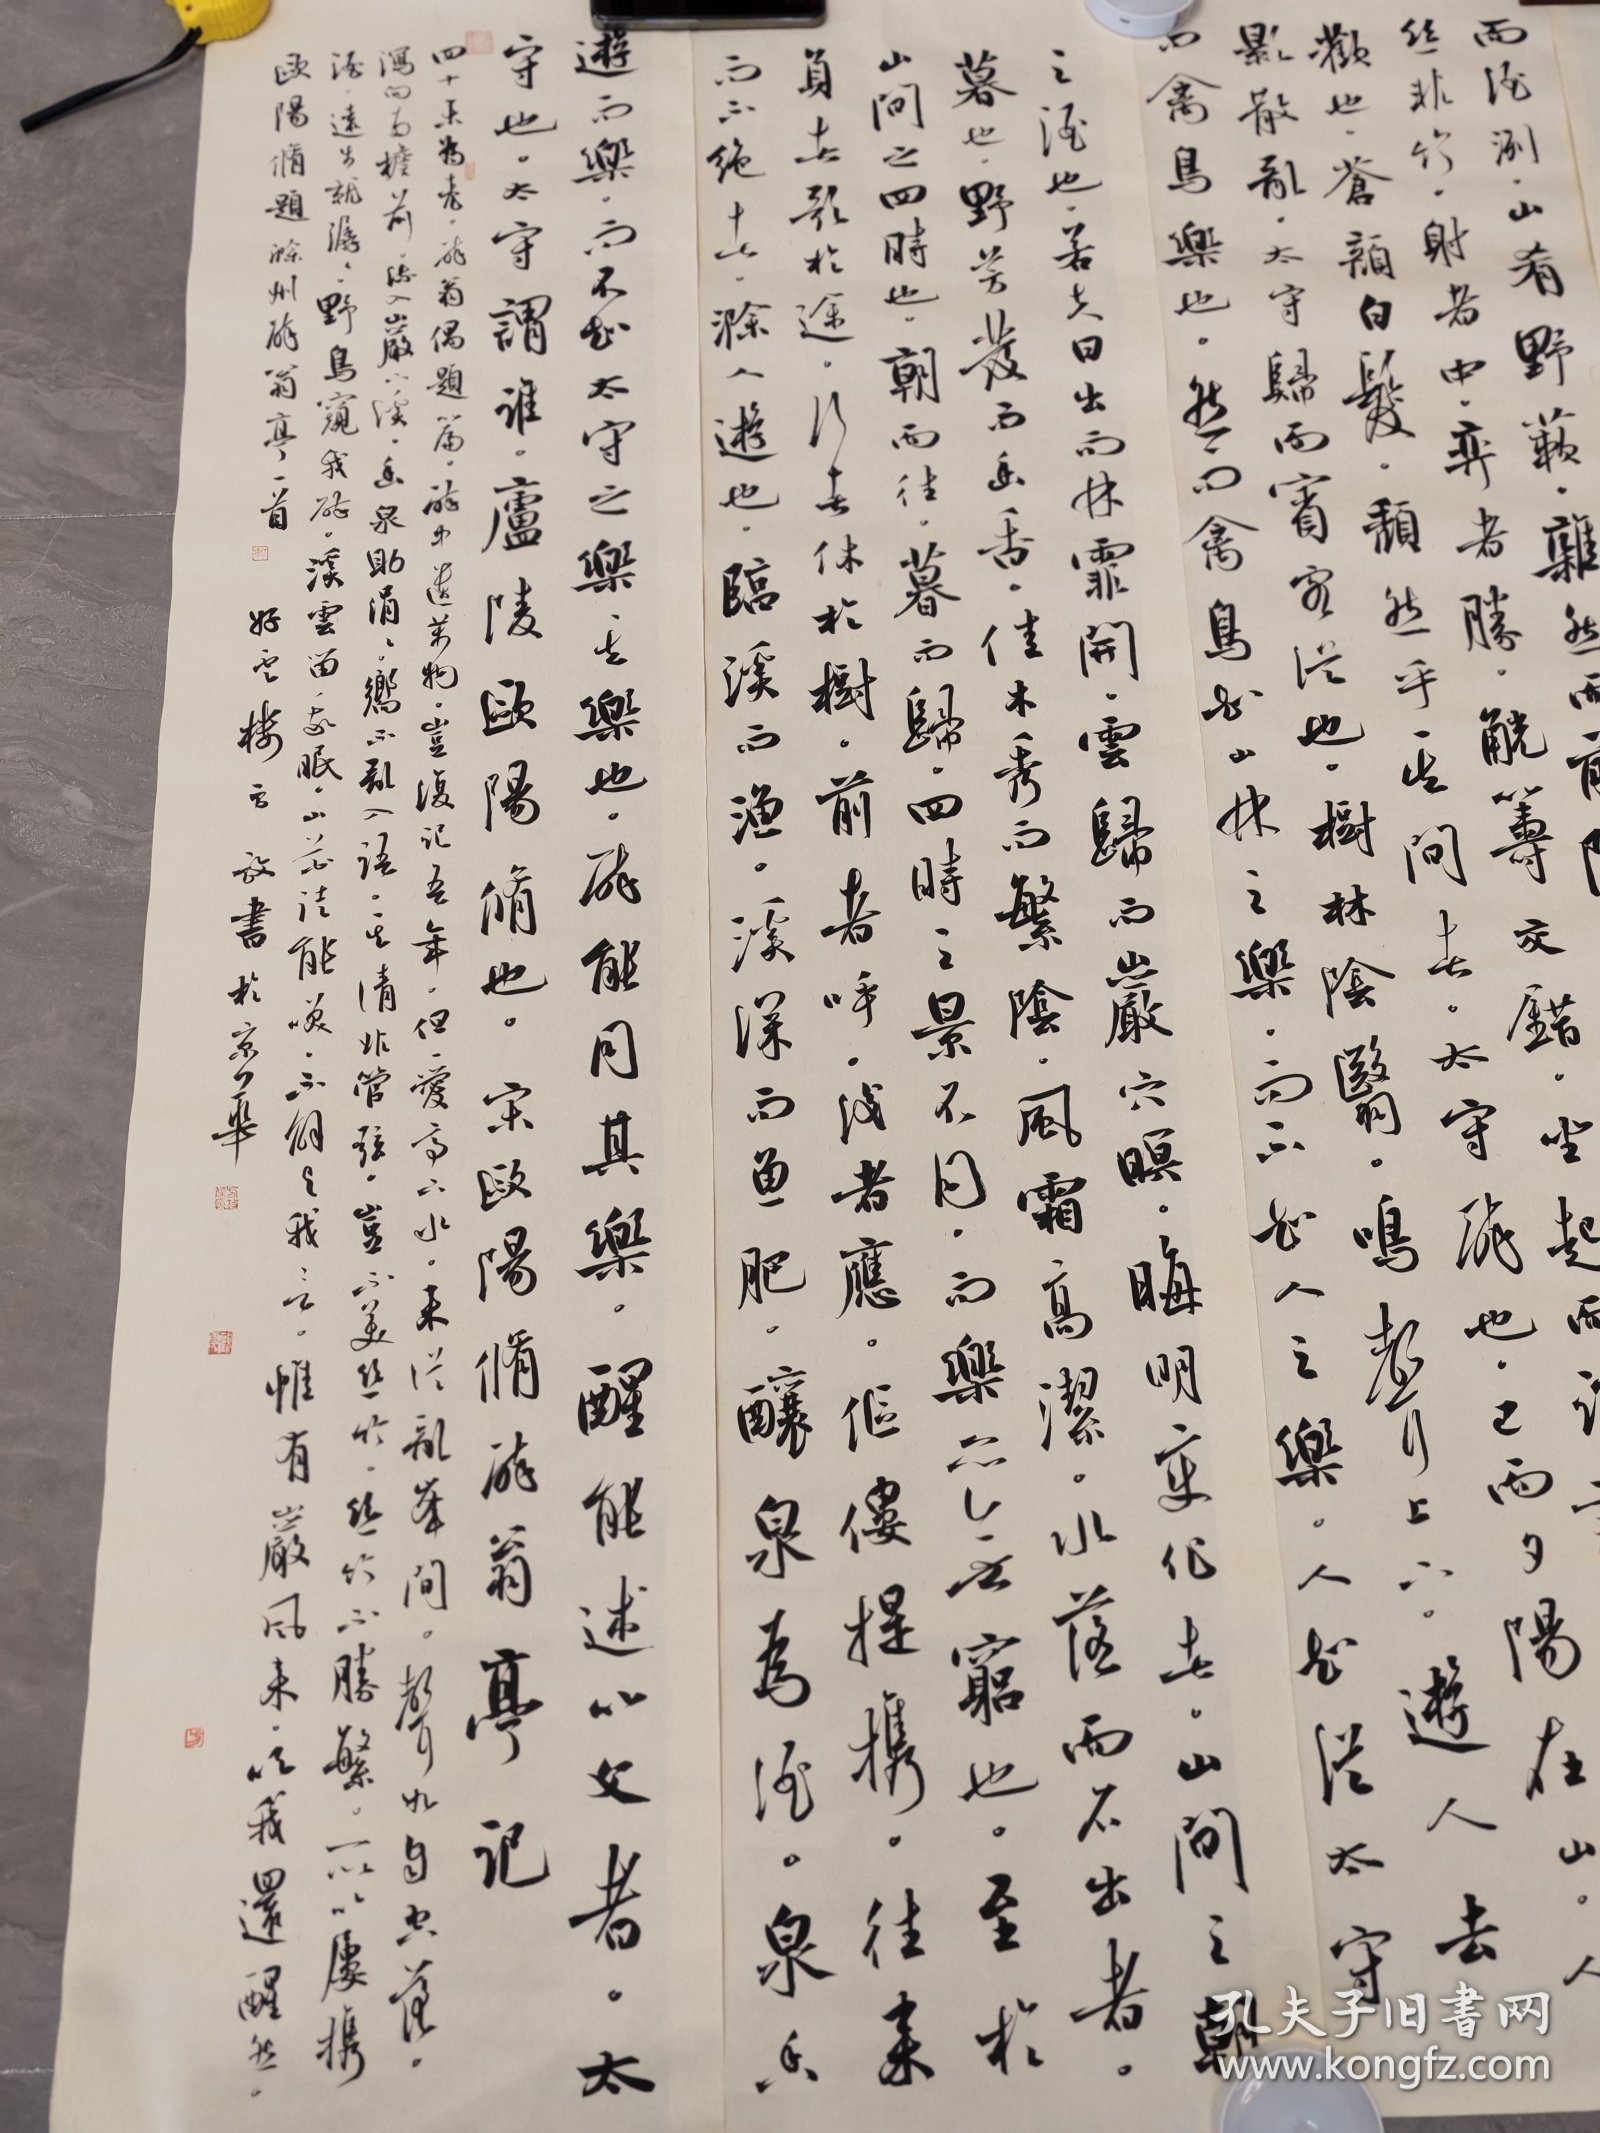 而酒洌。山肴野蔌。雜然而前
絲非竹。射者中。弈者勝。觥籌交錯。坐起而
歡也。蒼顏白髮。頹然乎其間者。太守醉也。已而夕陽在山。人
影散亂。太守歸而賓客從也。樹林陰翳。鳴聲上下。遊人去
而禽鳥樂也。然而禽鳥知山林之樂。而不知人之樂。人知從太守
之酒也。若夫日出而林霏開。雲歸而巖穴暝。晦明變化者。山間之朝
暮也。野芳發而幽香。佳木秀而繁陰。風霜高潔。水落而石出者。
山間之四時也。朝而往。暮而歸。四時之景不同。而樂亦無窮也。至於
負者歌於途。行者休於樹。前者呼。後者應。傴僂提攜。往來
而不絕者。滁人遊也。臨溪而漁。溪深而魚肥。釀泉為酒。泉香
遊而樂。而不知太守之樂其樂也。醉能同其樂。醒能述以文者。太
守也。太守謂誰。廬陵歐陽脩也。宋歐陽脩醉翁亭記
四十未為老。醉翁偶題篇。醉中遺萬物。豈復記吾年。但愛亭下水。來從亂峯間。聲如自空落。
瀉向兩檐前。流入巖下溪。幽泉助涓々。響不亂人語。其清非管弦。豈不美絲竹。絲竹不勝繁。所以屢攜
酒。遠步就潺々。野鳥窺我醉。溪雲留我眠。山花徒能笑。不解與我言。惟有巖風來。吹我還醒然。
歐陽脩題滁州醉翁亭一首 好雲樓主 敬書於京華
孔夫子旧书网
www.kongfz.com